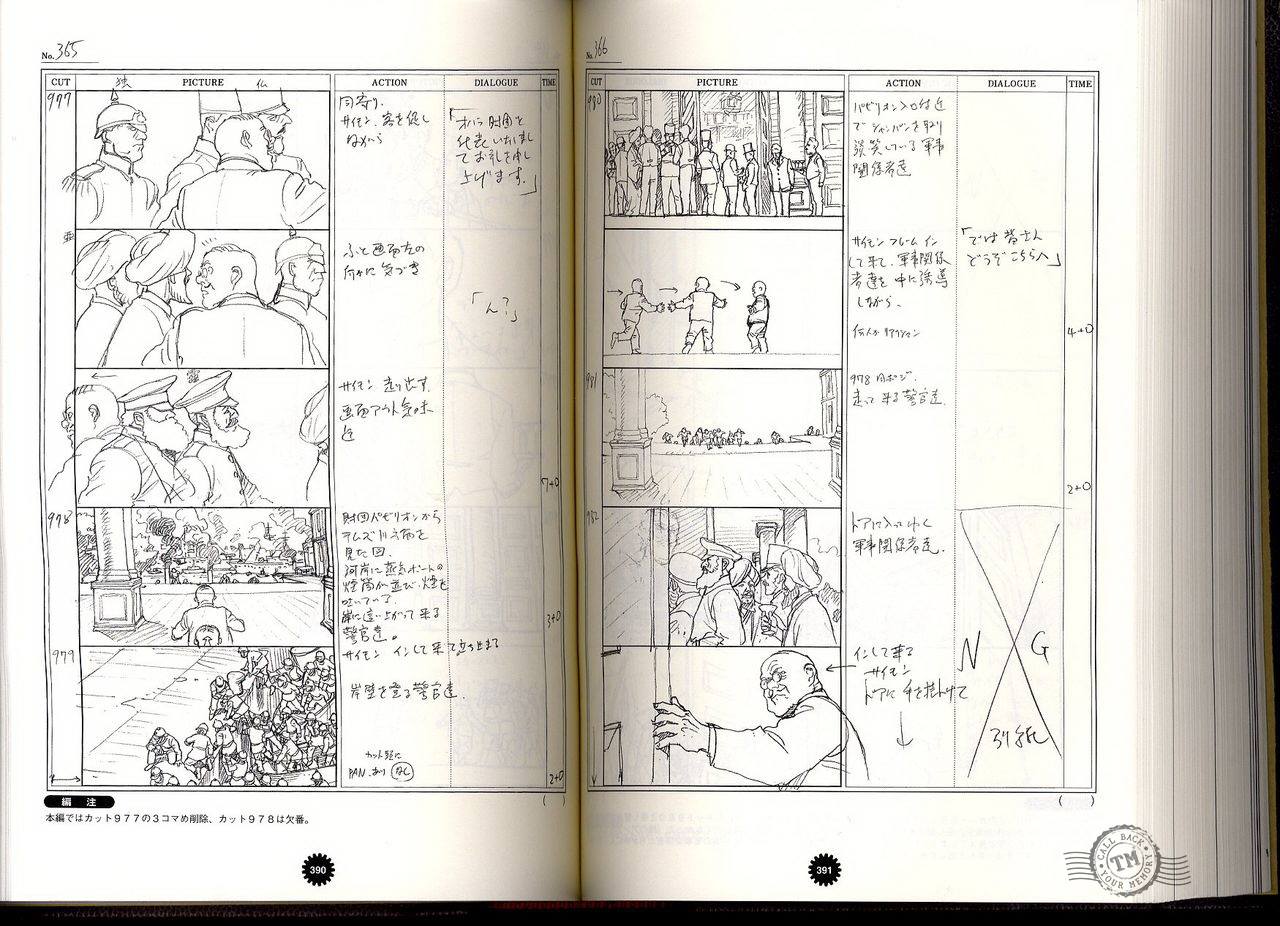 No. 365
CUT PICTURE ACTION DIALOGUE TIME
独 仏
977
同寄り.
サイモン、客を促し
ながら
「オハラ財団を
代表いたしまし
てお礼を申し
上げます。」
亜
ふと画面左の
何かに気づき
「ん?」
サイモン 走り出す.
画面アウト気味
迄
7+0
978
財団パビリオンから
テムズ川方面を
見た図.
河岸に蒸気ボートの
煙筒が並び、煙を
吐いている
岸に這い上がって来る
警官達。
サイモン インして来て立ち止まる
3+0
979
岸壁を登る警官達.
カット尻に
PAN.あり なし
2+0
( )
編 注
本編ではカット977の3コマめ削除、カット978は欠番。
390
No. 366
CUT PICTURE ACTION DIALOGUE TIME
980
パビリオン入口付近
でシャンパンを取り
談笑している軍事
関係者達
サイモン フレームイン
して来て、軍事関係
者達を中に誘導
しながら.
「では皆さん
どうぞこちらへ」
何人か リアクション
4+0
981
978 同ポジ.
走って来る警官達.
2+0
982
ドアに入ってゆく
軍事関係者達.
インして来る
サイモン
ドアに手を掛けて
N G
別紙
( )
391
CALL BACK
TM
YOUR MEMORY